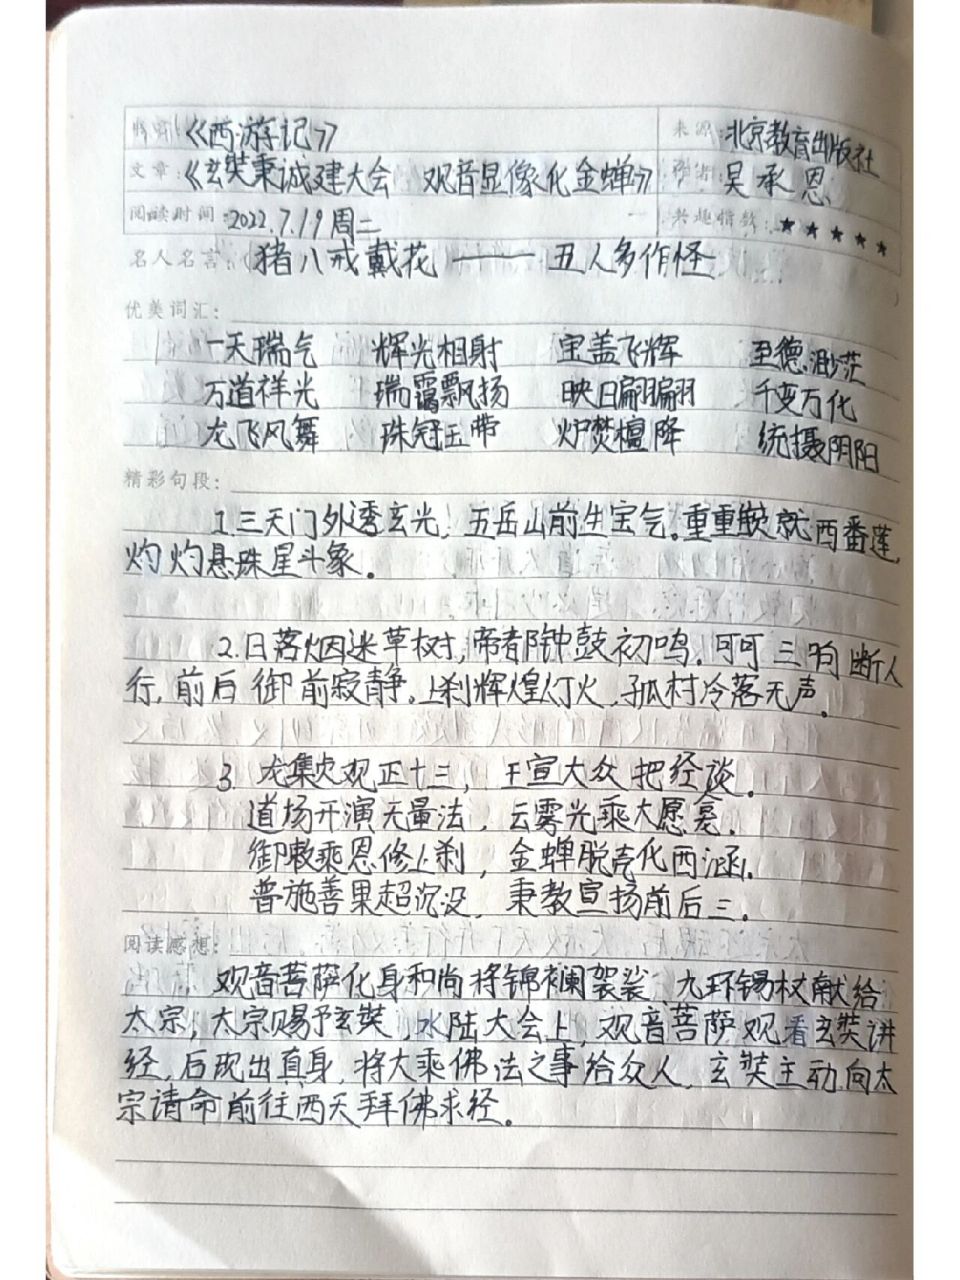 《西游记》 来源:北京教育出版社
文章:《玄奘秉诚建大会 观音显像化金蝉》 吴承恩
阅读时间:2022.7.19周二 兴趣指数:★★★★★
名人名言:猪八戒戴花——丑人多作怪
优美词汇:
一天瑞气 辉光相射 宝盖飞辉 至德渺茫
万道祥光 瑞霭飘扬 映日翩翩 千变万化
龙飞凤舞 珠冠玉带 炉焚檀降 统摄阴阳
精彩句段:
1.三天门外透玄光,五岳山前生宝气。重重嵌就西番莲,
灼灼悬珠星斗象。
2.日落烟迷草树,帝都钟鼓初鸣。叮叮三响断人
行,前后御前寂静。上刹辉煌灯火,孤村冷落无声。
3.龙集贞观正十三,王宣大众把经谈。
道场开演无量法,云雾光乘大愿龛。
御敕乘恩修上刹,金蝉脱壳化西涵。
普施善果超沉没,秉教宣扬前后三。
阅读感想:
观音菩萨化身和尚将锦襕袈裟 九环锡杖献给
太宗,太宗赐予玄奘,水陆大会上,观音菩萨观看玄奘讲
经,后现出真身,将大乘佛法之事给众人,玄奘主动向太
宗请命前往西天拜佛求经。